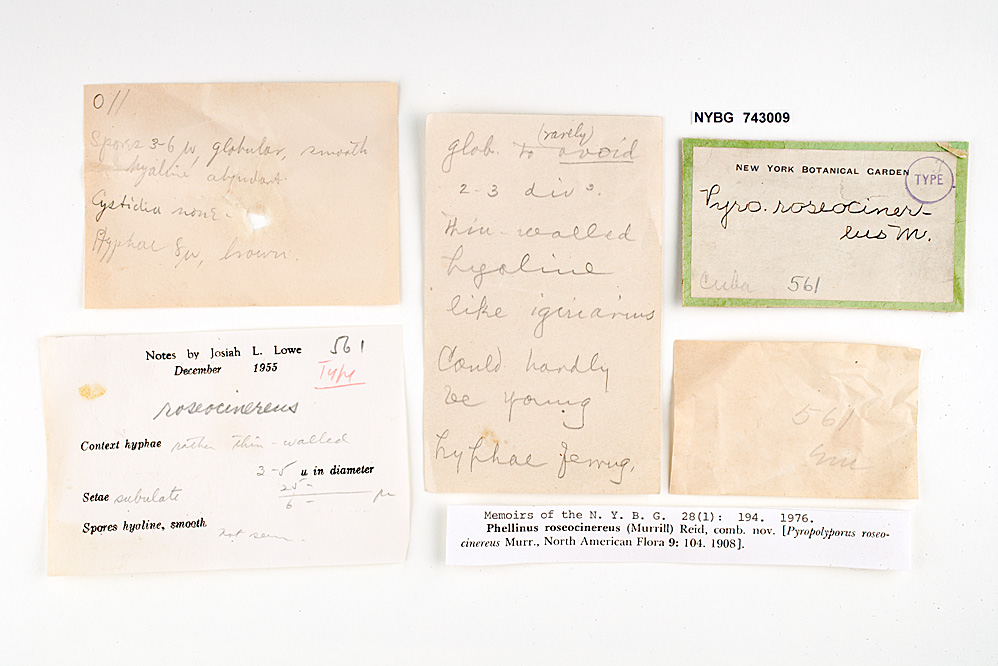 O11
Spores 3-6 u, globular, smooth
hyaline abundant.
Cystidia none.
Hyphae 5u, brown.
Notes by Josiah L. Lowe 561
December 1955 Type
roseocinereus
Context hyphae rather thin-walled
3-5 u in diameter
Setae subulate 25-
6 - µ
Spores hyaline, smooth,
not seen.
(rarely)
glob. to ovoid
2-3 div³.
Thin-walled
hyaline
like igniarius
Could hardly
be young
hyphae ferrug.
NYBG 743009
NEW YORK BOTANICAL GARDEN
TYPE
Pyro. roseociner-
eus M.
Cuba 561
561
Memoirs of the N. Y. B. G. 28(1): 194. 1976.
Phellinus roseocinereus (Murrill) Reid, comb. nov. [Pyropolyporus roseo-
cinereus Murr., North American Flora 9: 104. 1908].